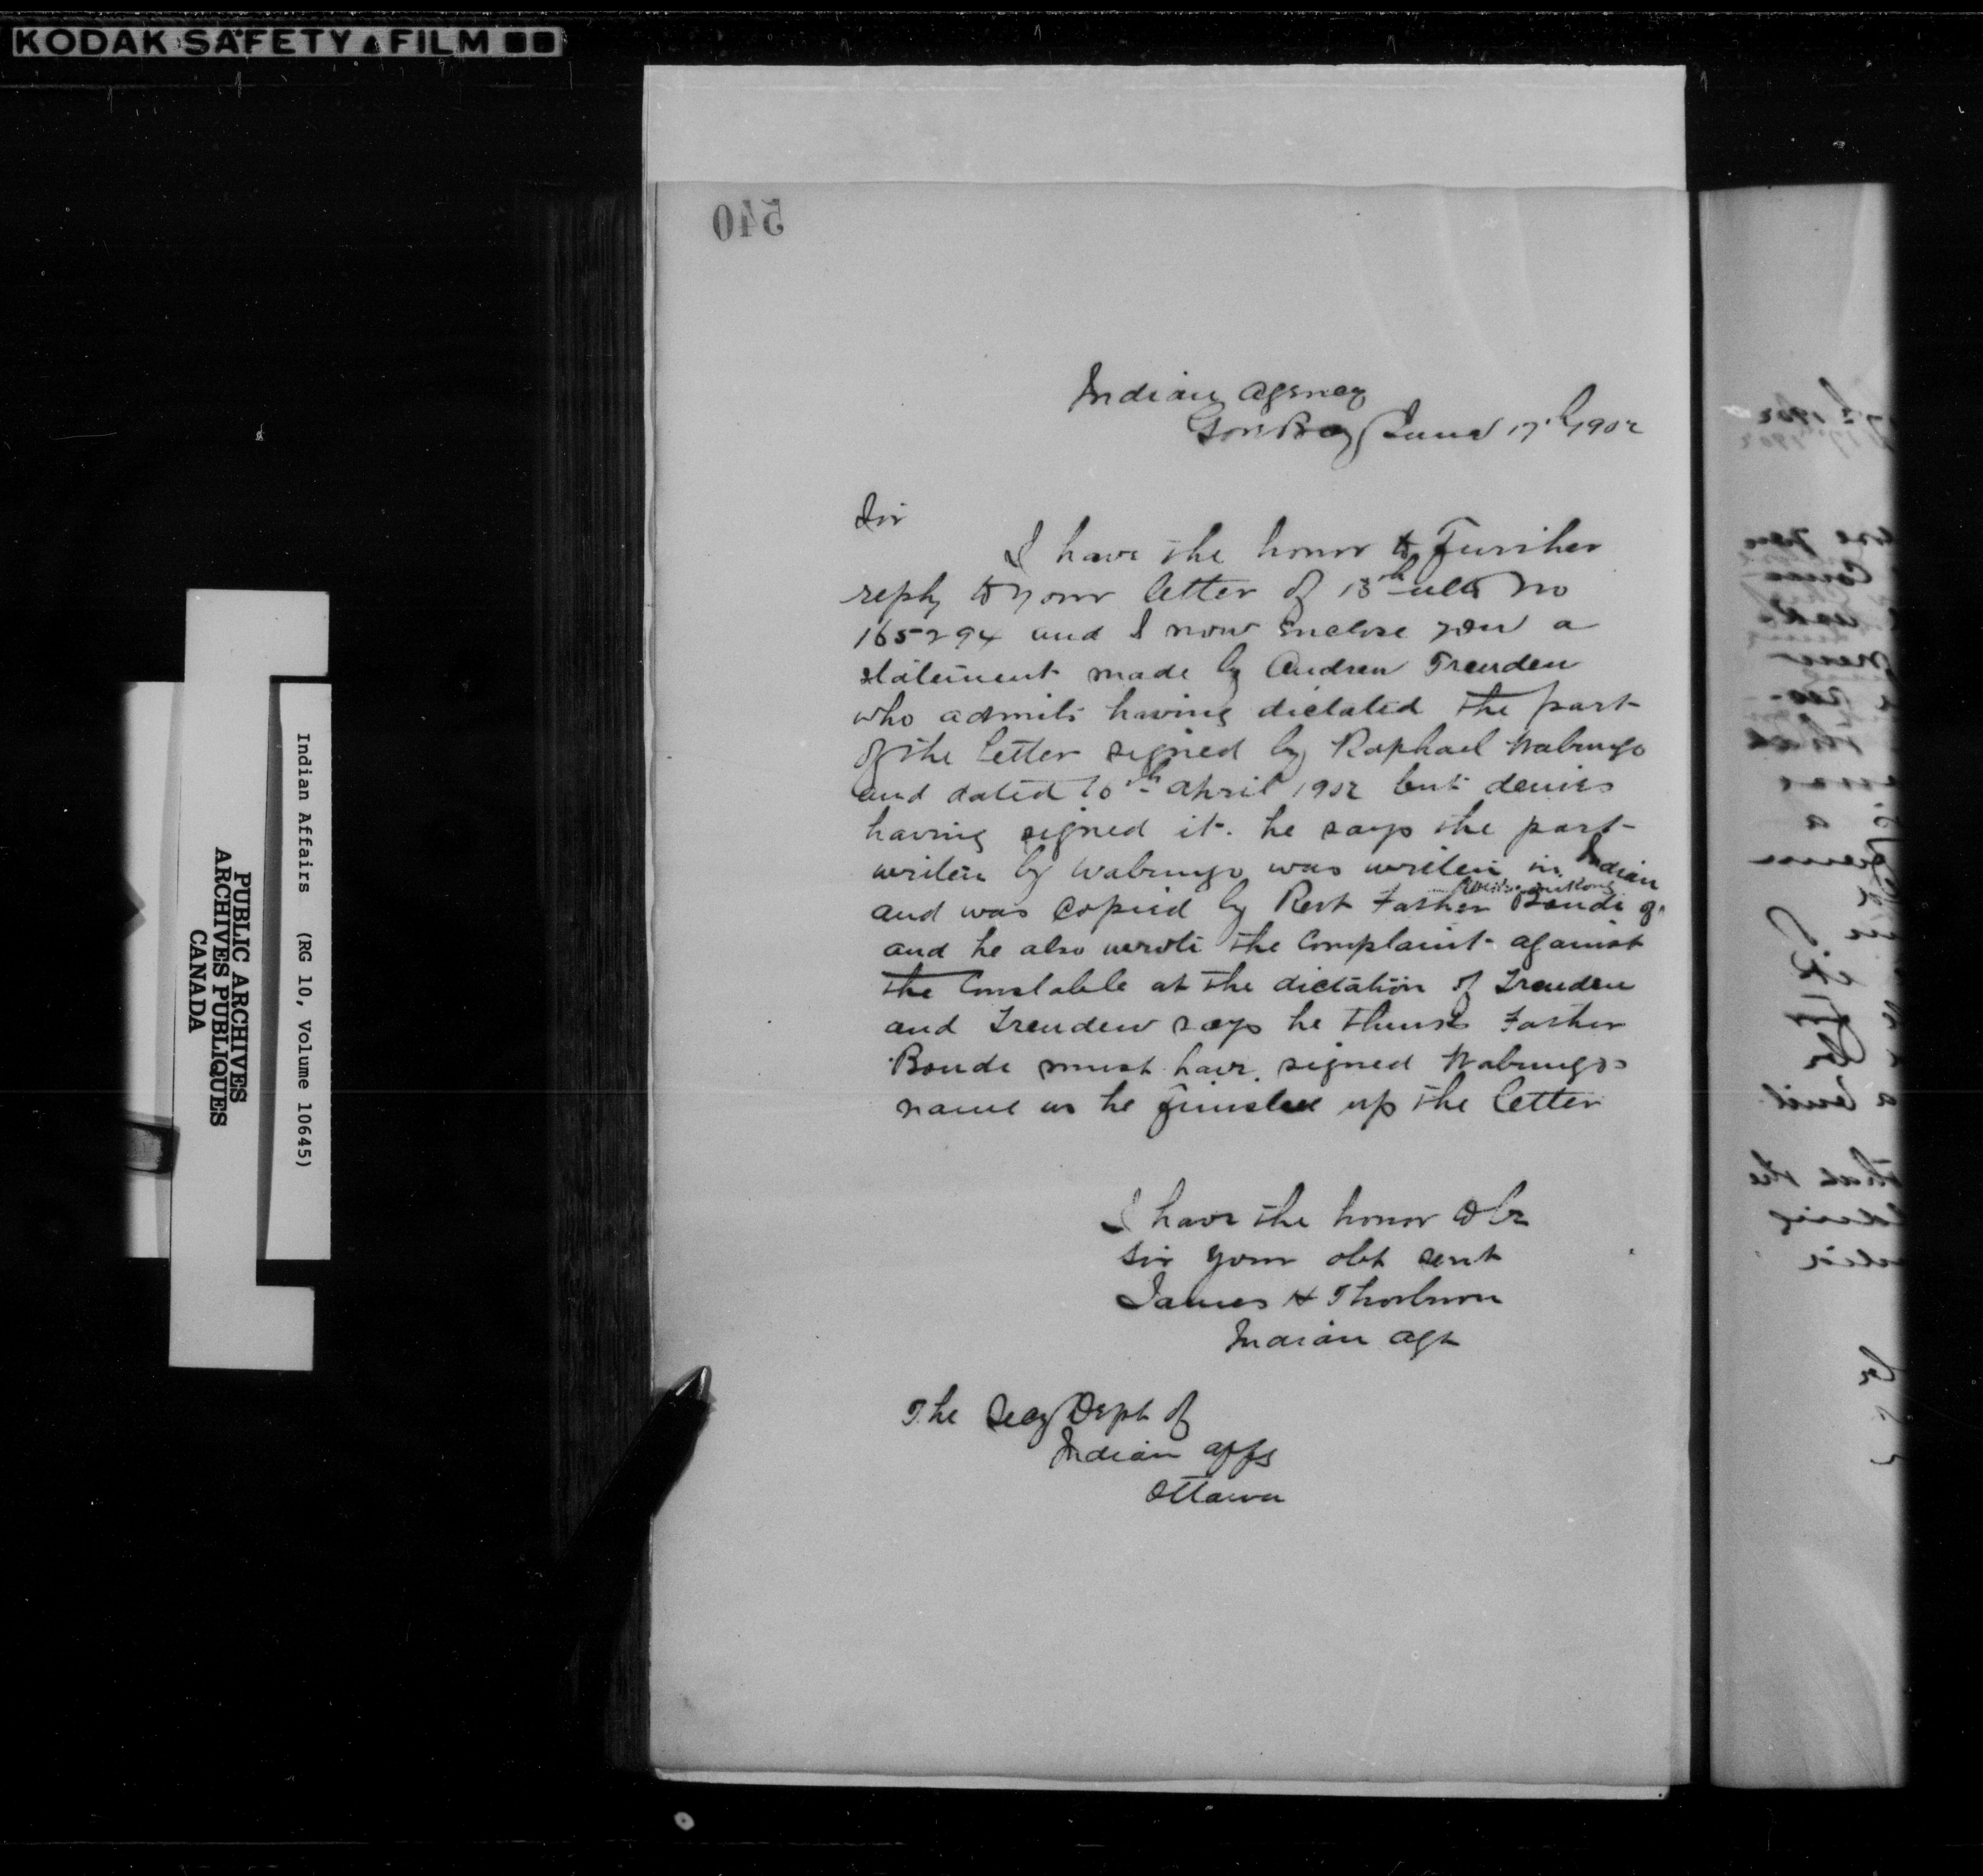 KODAK SAFETY FILM
540
Indian Agency
Gore Bay June 17th 1902
Sir
I have the honor to further
reply to your letter of 13th ulto No
165294 and I now enclose you a
statement made by Andrew Treuden
who admits having dictated the part
of the letter signed by Raphael Wabungo
and dated 10th April 1902 but denies
having signed it. he says the part
writen by Wabungo was writen in Indian
and was copied by Revt Father Boudi of
and he also wrote the Complaint against
the Constable at the dictation of Treuden
and Treuden says he thinks Father
Boude must have signed Wabungos
name as he finished up the letter
I have the honor to be
Sir your obt servt
James H Thorburn
Indian Agt
The Secy Dept of
Indian Affs
Ottawa
Indian Affairs (RG 10, Volume 10645)
PUBLIC ARCHIVES
ARCHIVES PUBLIQUES
CANADA